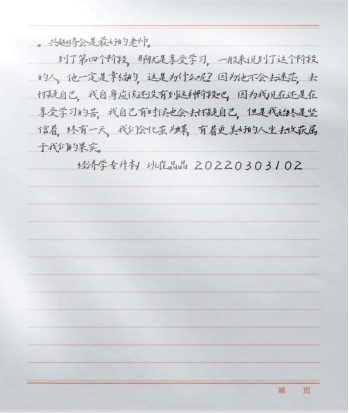 。兴趣将会是最好的老师。
到了第四个阶段，那就是享受学习，一般来说到了这个阶段
的人，他一定是幸福的，这是为什么呢？因为他不会去迷茫，去
怀疑自己，我自身应该还没有到达到阶段吧，因为我现在还是在
享受学习的苦，我自己有时候也会去怀疑自己，但是我始终是坚
信着，终有一天，我们会化茧为蝶，有着更美好的人生去收获属
于我们的果实。
经济学专升本1班崔晶晶 20220303102
第 页